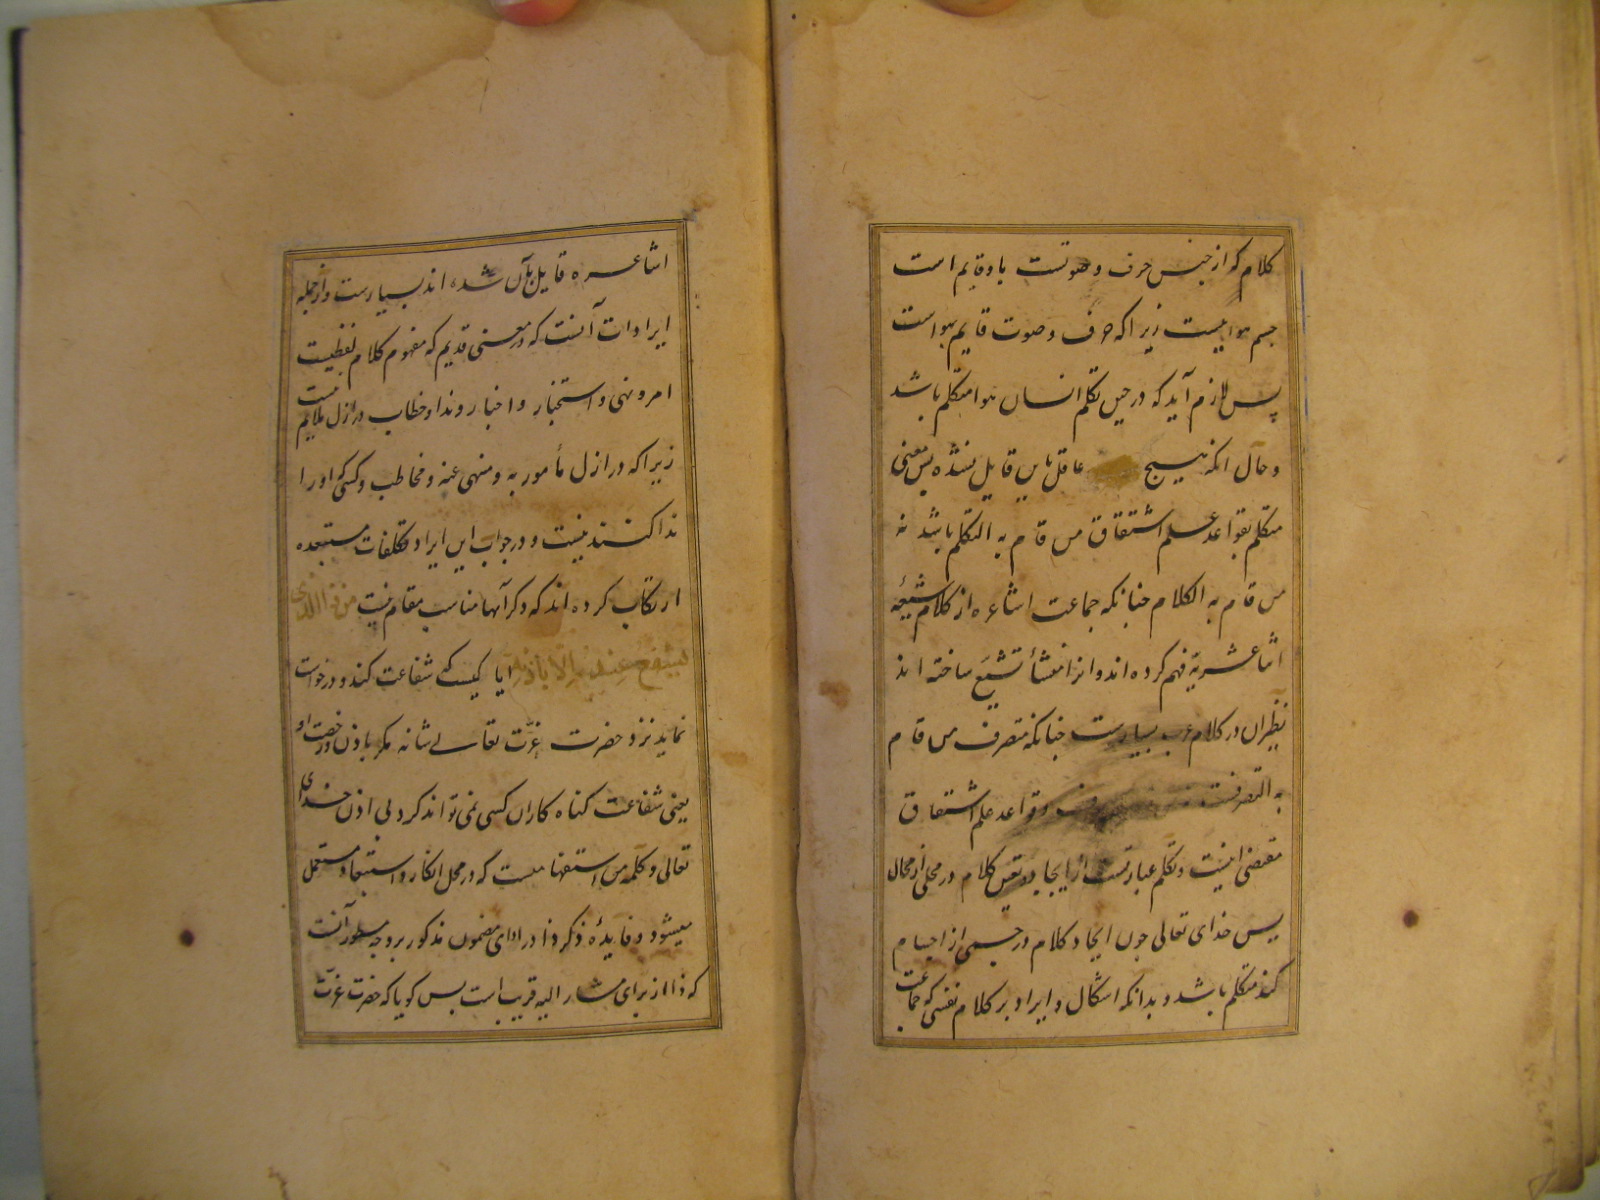 کلام که از جنس حرف و صوتست باو قایم است
جسم هوائیست زیرا که حرف و صوت قایم بهواست
پس لازم آید که در حین تکلم انسان هوا متکلم باشد
و حال انکه هیچ عاقل باین قایل نشده پس معنی
متکلم بقواعد علم اشتقاق من قام به التکلم باشد نه
من قام به الکلام چنانکه جماعت اشاعره از کلام شیعهٔ
اثنا عشریه فهم کرده اند و انرا منشأ تشیع ساخته اند
نظیر ان در کلام عرب بسیارست چنانکه متصرف من قام
به التصرفست و قواعد علم اشتقاق
مقتضی اینست و تکلم عبارتست از ایجاد کلام در محلی از محال
پس خدای تعالی چون ایجاد کلام در جسمی از اجسام
کند متکلم باشد و بدانکه اشکال و ایراد بر کلام نفسی که جماعت
اشاعره قایل بآن شده اند بسیارست و ازجمله
ایرادات آنست که در معنی قدیم که مفهوم کلام لفظیست
امر و نهی و استخبار و اخبار و ندا و خطاب در ازل ملایم نیست
زیرا که در ازل مأمور به و منهی عنه و مخاطب و کسی که او را
ندا کنند نیست و در جواب این ایراد تکلفات مستبعده
ارتکاب کرده اند که ذکر آنها مناسب مقام نیست من ذا الذی
یشفع عنده الا باذنه ایا کیست که شفاعت کند و درخواست
نماید نزد حضرت عزت تعالی شانه مکر باذن و رخصت او
یعنی شفاعت کناه کاران کسی نمی تواند کرد بی اذن خدای
تعالی و کلمه من استفهامست که در محل انکار و استبعاد مستعمل
میشود و فایدهٔ ذکر ذا در ادای مضمون مذکور بر وجه مسطور آنست
که ذا از برای مشار الیه قریب است پس کویا که حضرت عزت